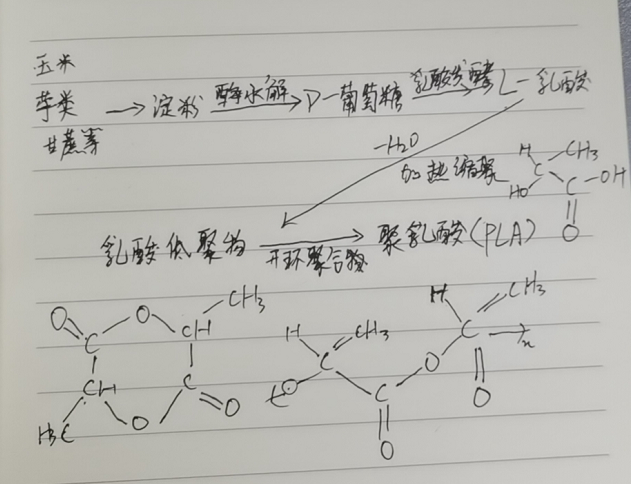 玉米
芋类 → 淀粉 酶水解 D-葡萄糖 乳酸发酵 L-乳酸
甘蔗等
-H2O
加热缩聚
H CH3
HO C C-OH
O
乳酸低聚物 开环聚合 聚乳酸(PLA)
CH3
O O CH H CH3 H CH3
C C C
O n
CH C O C
H3C O O O O